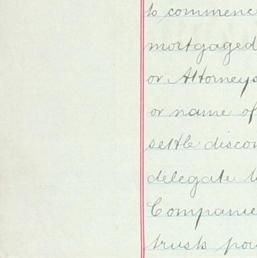 to commenc
mortgaged
or Attorneys
or name of
settle discon
delegate t
Companie
trusts pow